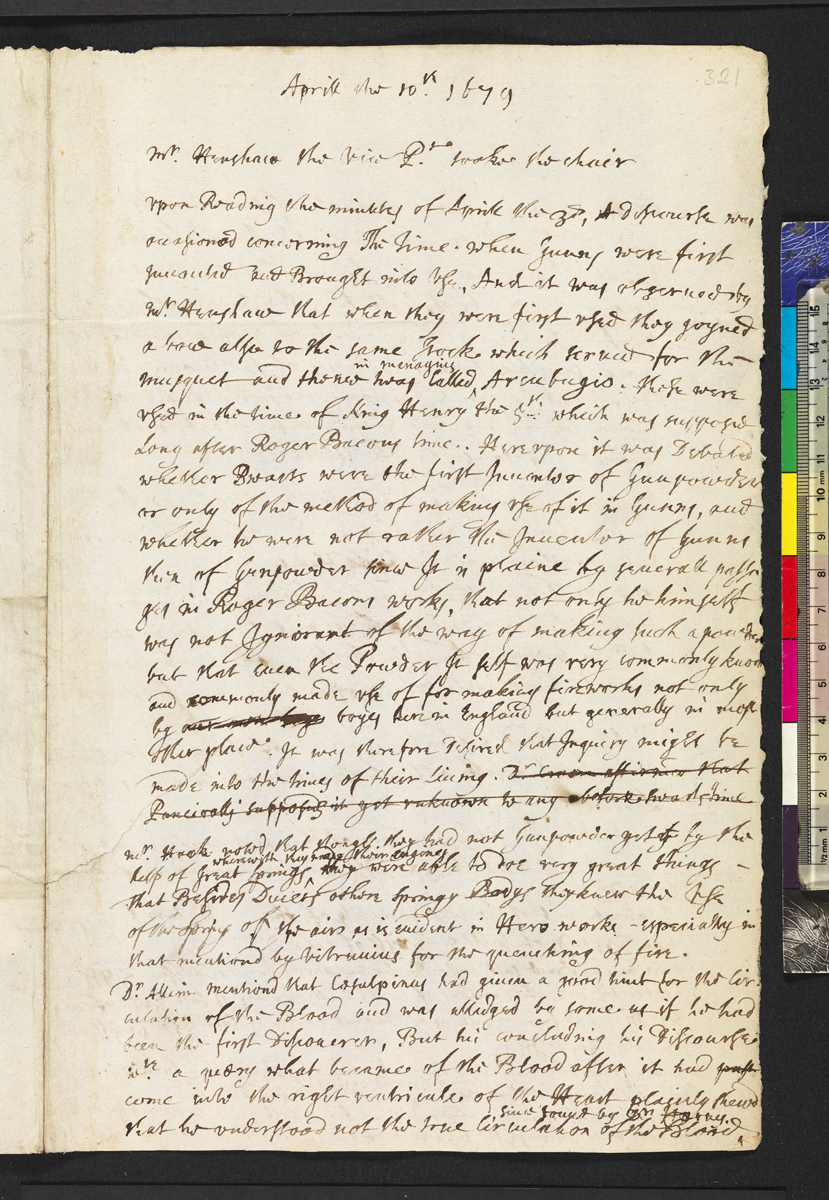 321
Aprill the 10th. 1679
Mr. Henshaw the vice Pt. tooke the chair
vpon Reading the minutes of Aprill the 3d, A discourse was
occasioned concerning The time. when Gunns were first
inuented and Brought into Vse, And it was obserued by
Mr Henshaw that when they were first vsed they Joyned
a bow also to the same Stock which serued for the
in menagius
musquet and thence was Called Arcubugio. these were
vsed in the time of King Henry the 5th. which was supposed
Long after Roger Bacons time.. Herevpon it was Debated
whether Swarts were the first Inuentor of Gunpowder
or only of the method of making vse of it in Gunns, and
whether he were not rather the Inuentor of Gunns
then of Gunpowder since It is plaine by seuerall passa
ges in Roger Bacons works, that not only he himself
was not Ignorant of the way of making such a powder
but that euen the Powder It self was very commonly know
and commonly made vse of for making fireworks not only
by boyes here in England but generally in most
other places. It was therefore Desired that Inquiry might be
made into the times of their Liuing. Dr Croon affirmed that
Pancirolli supposes it yet vnknown to any before Swarts time
Mr. Hook noted that though they had not Gunpowder yet by the
wherewith they made their engines
help of great springs they were able to doe very great things -
that Besides Duiers other Springy Bodys they knew the Vse
of the Spring of the air as is euident in Hero works - especially in
that mentiond by Vitruuius for the quenching of fire.
Dr. Allin mentiond that Cesalpinus had giuen a good hint for the Cir-
culation of the Blood and was alledged by some as if he had
been the first Discouerer, But his concluding his Discourse
wth. a query what became of the Blood after it had
come into the right ventricule of the Heart plainly shewd
since found by Dr. Haruy.
that he vnderstood not the true Circulation of the Blood